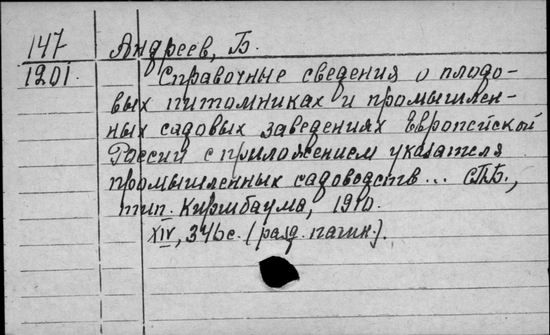 147
1201.
Андреев, Б.
Справочные сведения о плодо-
вых питомниках и промышлен-
ных садовых заведениях Европейской
России с приложением указателя
промышленных садоводств... СПБ.,
тип. Киршбаума, 1910.
XIV, 346с. (разд. пагин.).